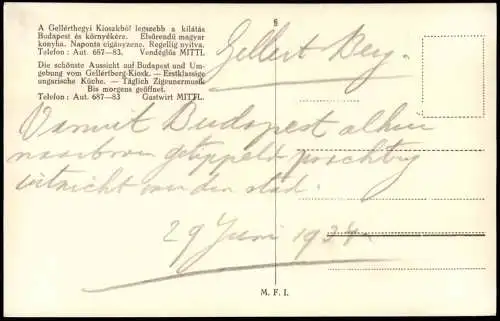 A Gellérthegyi Kioszkból legszebb a kilátás
Budapest és környékére. Elsőrendű magyar
konyha. Naponta cigányzene. Reggelig nyitva.
Telefon: Aut. 687—83. Vendéglős MITTL
Die schönste Aussicht auf Budapest und Um-
gebung vom Gellértberg-Kiosk. — Erstklassige
ungarische Küche. — Täglich Zigeunermusik
Bis morgens geöffnet.
Telefon: Aut. 687—83 Gastwirt MITTL.
§
Gellert Berg.
Vanuit Budapest alhier
naarboven getippeld prachtig
uitzicht over de stad.
29 Juni 1934
M. F. I.